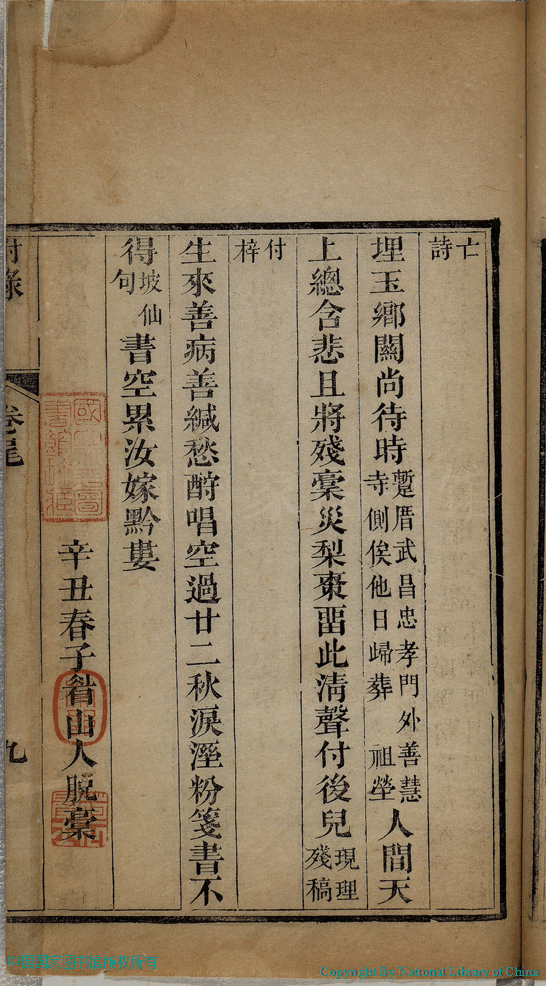 亡
詩
埋玉鄉關尚待時暫厝武昌忠孝門外善慧
寺側俟他日歸葬 祖塋人間天
上總含悲且將殘稾災梨棗畱此淸聲付後兒現理
殘稿
付
梓
生來善病善緘愁酧唱空過廿二秋淚溼粉箋書不
得坡仙
句書空累汝嫁黔婁
辛丑春子山人脫稾
附錄
卷尾
九
Copyright by National Library of China